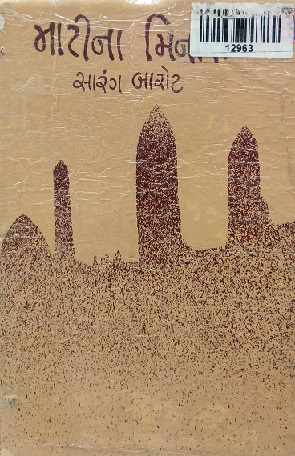 માટીના
સારંગ બારોટ
12963